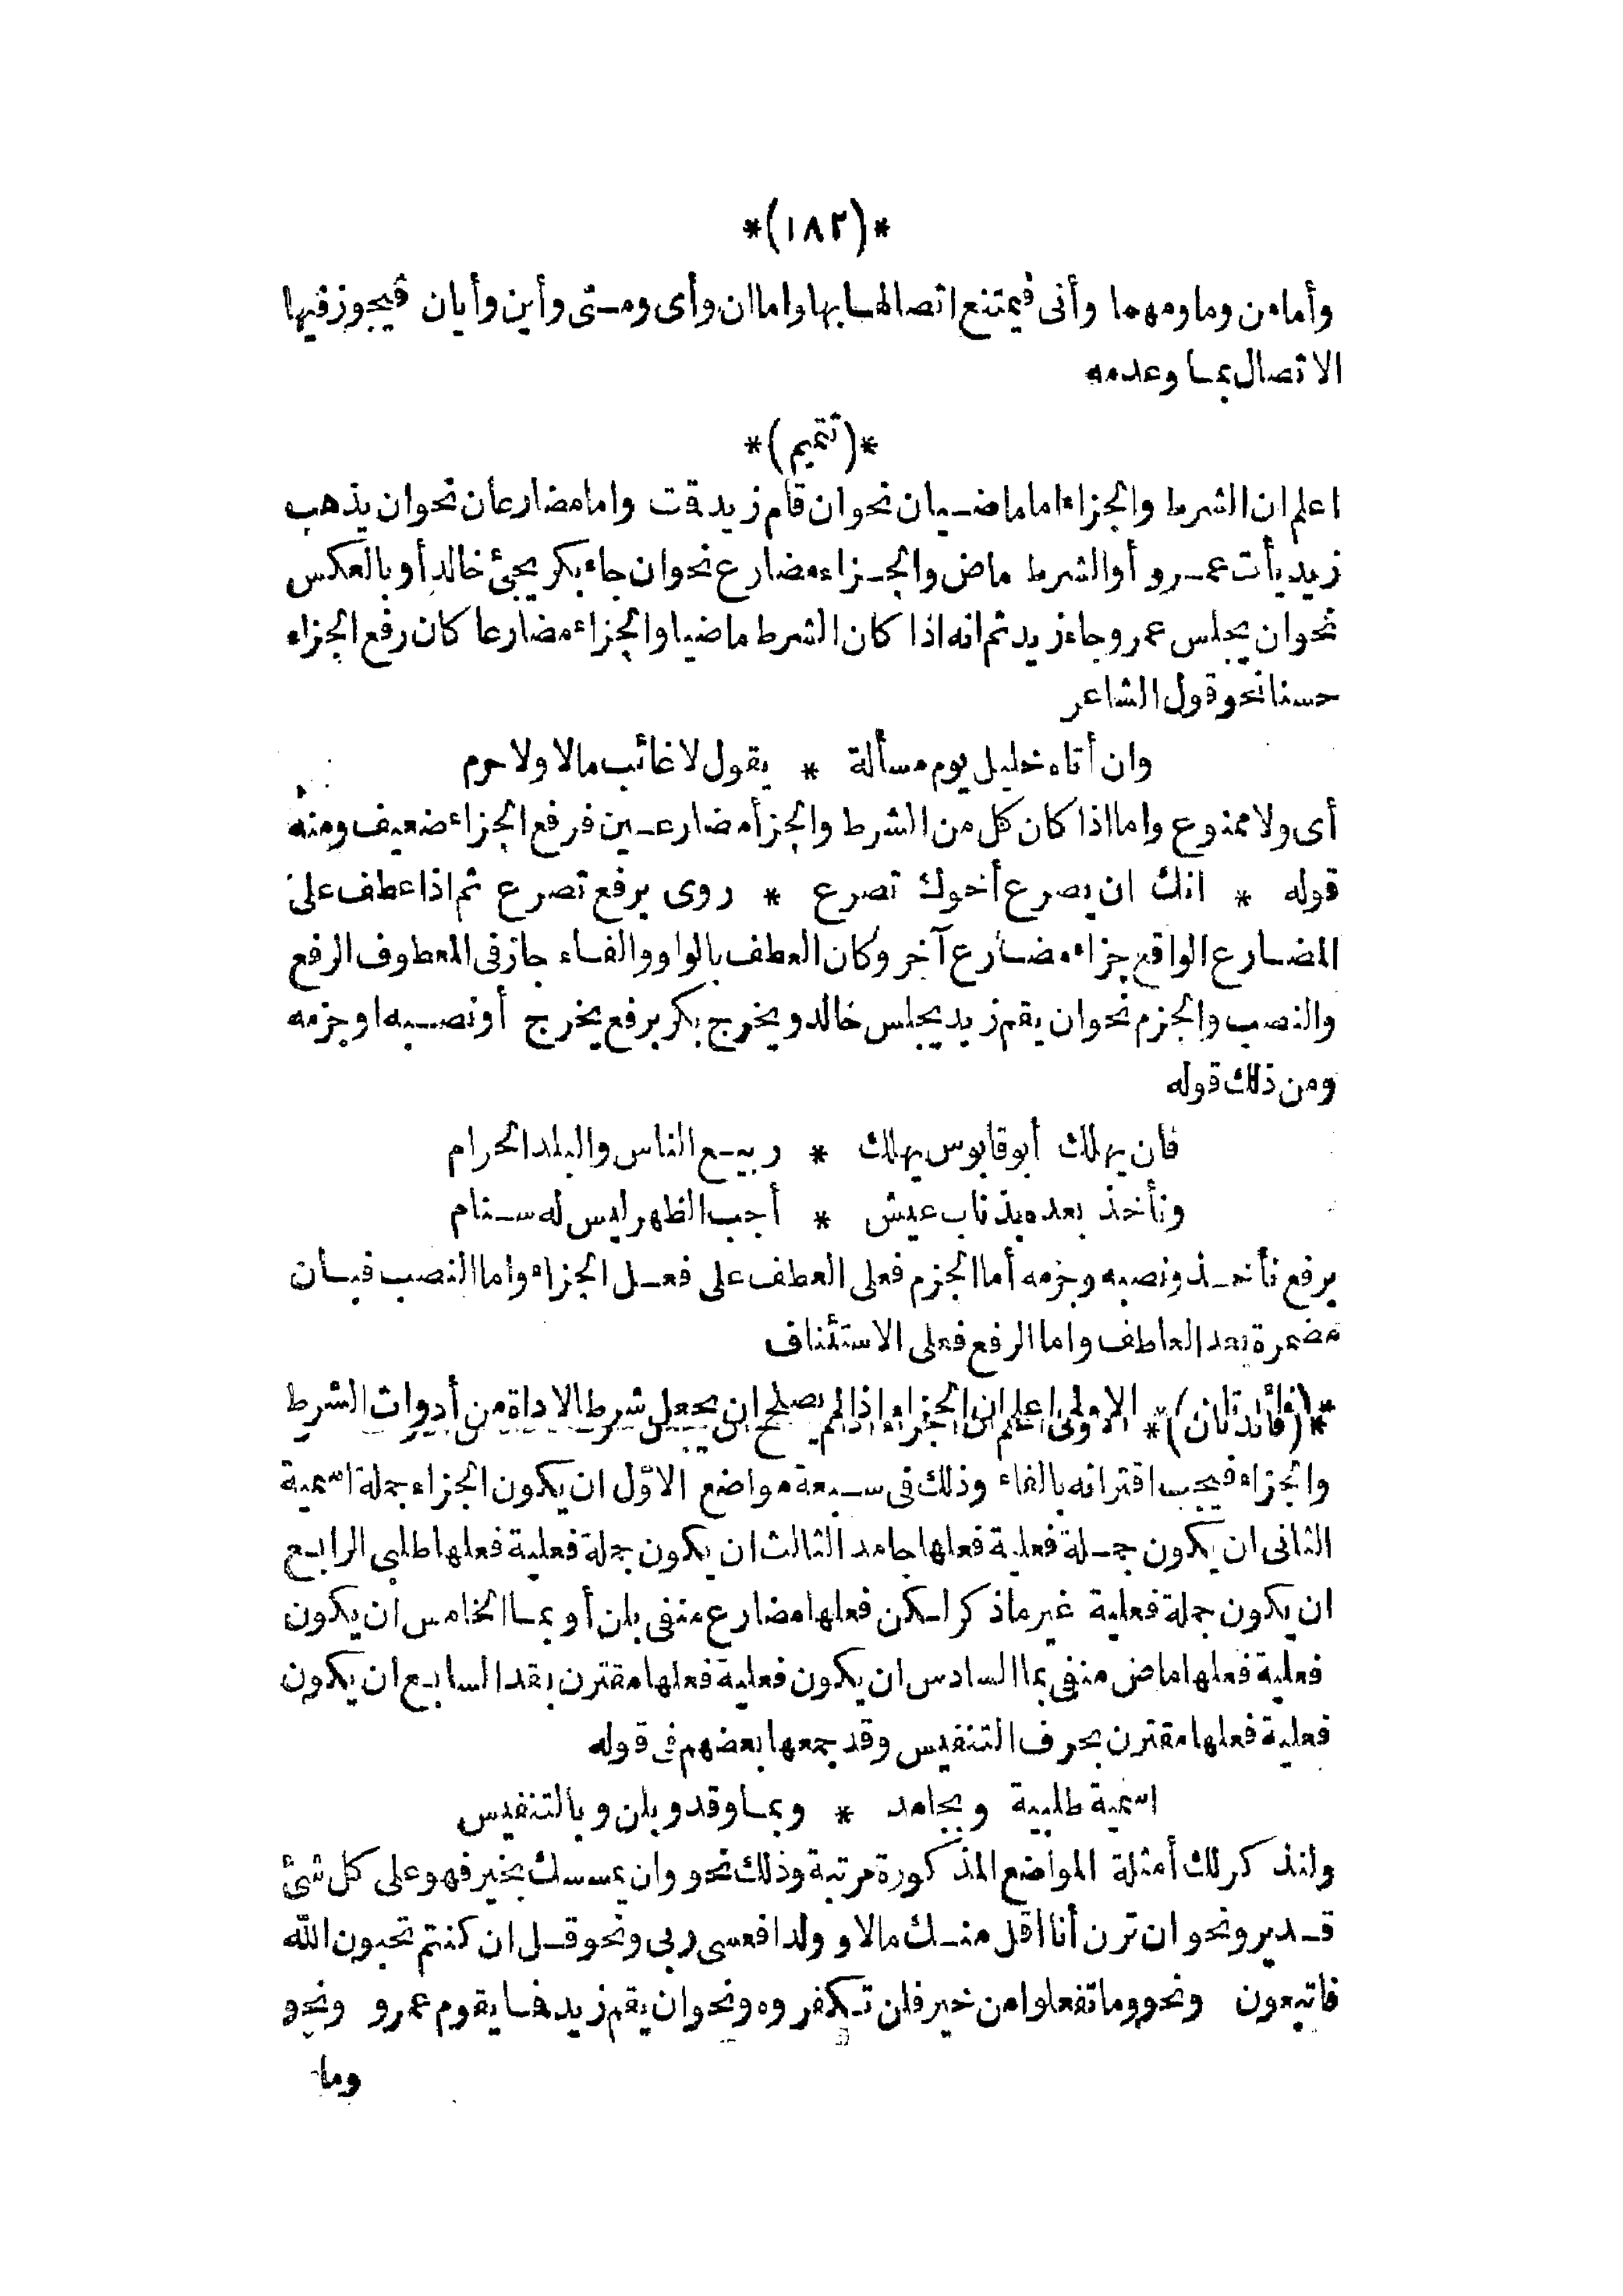 *(١٨٢)*
وأما من وما ومهما وأنى فيمتنع اتصالها بها واما ان وأى ومتى وأين وأيان فيجوز فيها
الاتصال بما وعدمه
*(تتميم)*
اعلم ان الشرط والجزاء اما ماضيان نحو ان قام زيد قت واما مضارعان نحو ان يذهب
زيد يأت عمرو أو الشرط ماض والجزاء مضارع نحو ان جاء بكر يجئ خالد أو بالعكس
نحو ان يجلس عمرو جاء زيد ثم انه اذا كان الشرط ماضيا والجزاء مضارعا كان رفع الجزاء
حسنا نحو قول الشاعر
وان أتاه خليل يوم مسألة * يقول لا غائب مالا ولا حرم
أى ولا ممنوع واما اذا كان كل من الشرط والجزأ مضارعين فرفع الجزاء ضعيف ومنه
قوله * انك ان يصرع أخوك تصرع * روى برفع تصرع ثم اذا عطف على
المضارع الواقع جزاء مضارع آخر وكان العطف بالواو والفاء جاز فى المعطوف الرفع
والنصب والجزم نحو ان يقم زيد يجلس خالد ويخرج بكر برفع يخرج أو نصبه او جزمه
ومن ذلك قوله
فان يهلك أبو قابوس يهلك * ربيع الناس والبلد الحرام
ونأخذ بعده بذناب عيش * أجب الظهر ليس له سنام
برفع نأخذ ونصبه وجزمه أما الجزم فعلى العطف على فعل الجزاء واما النصب فبان
مضمرة بعد العاطف واما الرفع فعلى الاستئناف
*(فائدتان)* الاولى اعلم ان الجزاء اذا لم يصلح ان يجعل شرط الاداة من أدوات الشرط
والجزاء فيجب اقترانه بالفاء وذلك فى سبعة مواضع الاوّل ان يكون الجزاء جملة اسمية
الثانى ان يكون جملة فعلية فعلها جامد الثالث ان يكون جملة فعلية فعلها طلبى الرابع
ان يكون جملة فعلية غير ما ذكر لكن فعلها مضارع منفى بلن أو بما الخامس ان يكون
فعلية فعلها ماض منفى بما السادس ان يكون فعلية فعلها مقترن بقد السابع ان يكون
فعلية فعلها مقترن بحرف التنفيس وقد جمعها بعضهم فى قوله
اسمية طلبية وبجامد * وبما وقد وبلن وبالتنفيس
ولنذكر لك أمثلة المواضع المذكورة مرتبة وذلك نحو وان يمسسك بخير فهو على كل شئ
قدير ونحو ان ترن أنا أقل منك مالا وولدا فعسى ربى ونحو قل ان كنتم تحبون الله
فاتبعون ونحو وما تفعلوا من خير فلن تكفروه ونحو ان يقم زيد فما يقوم عمرو ونحو
وما